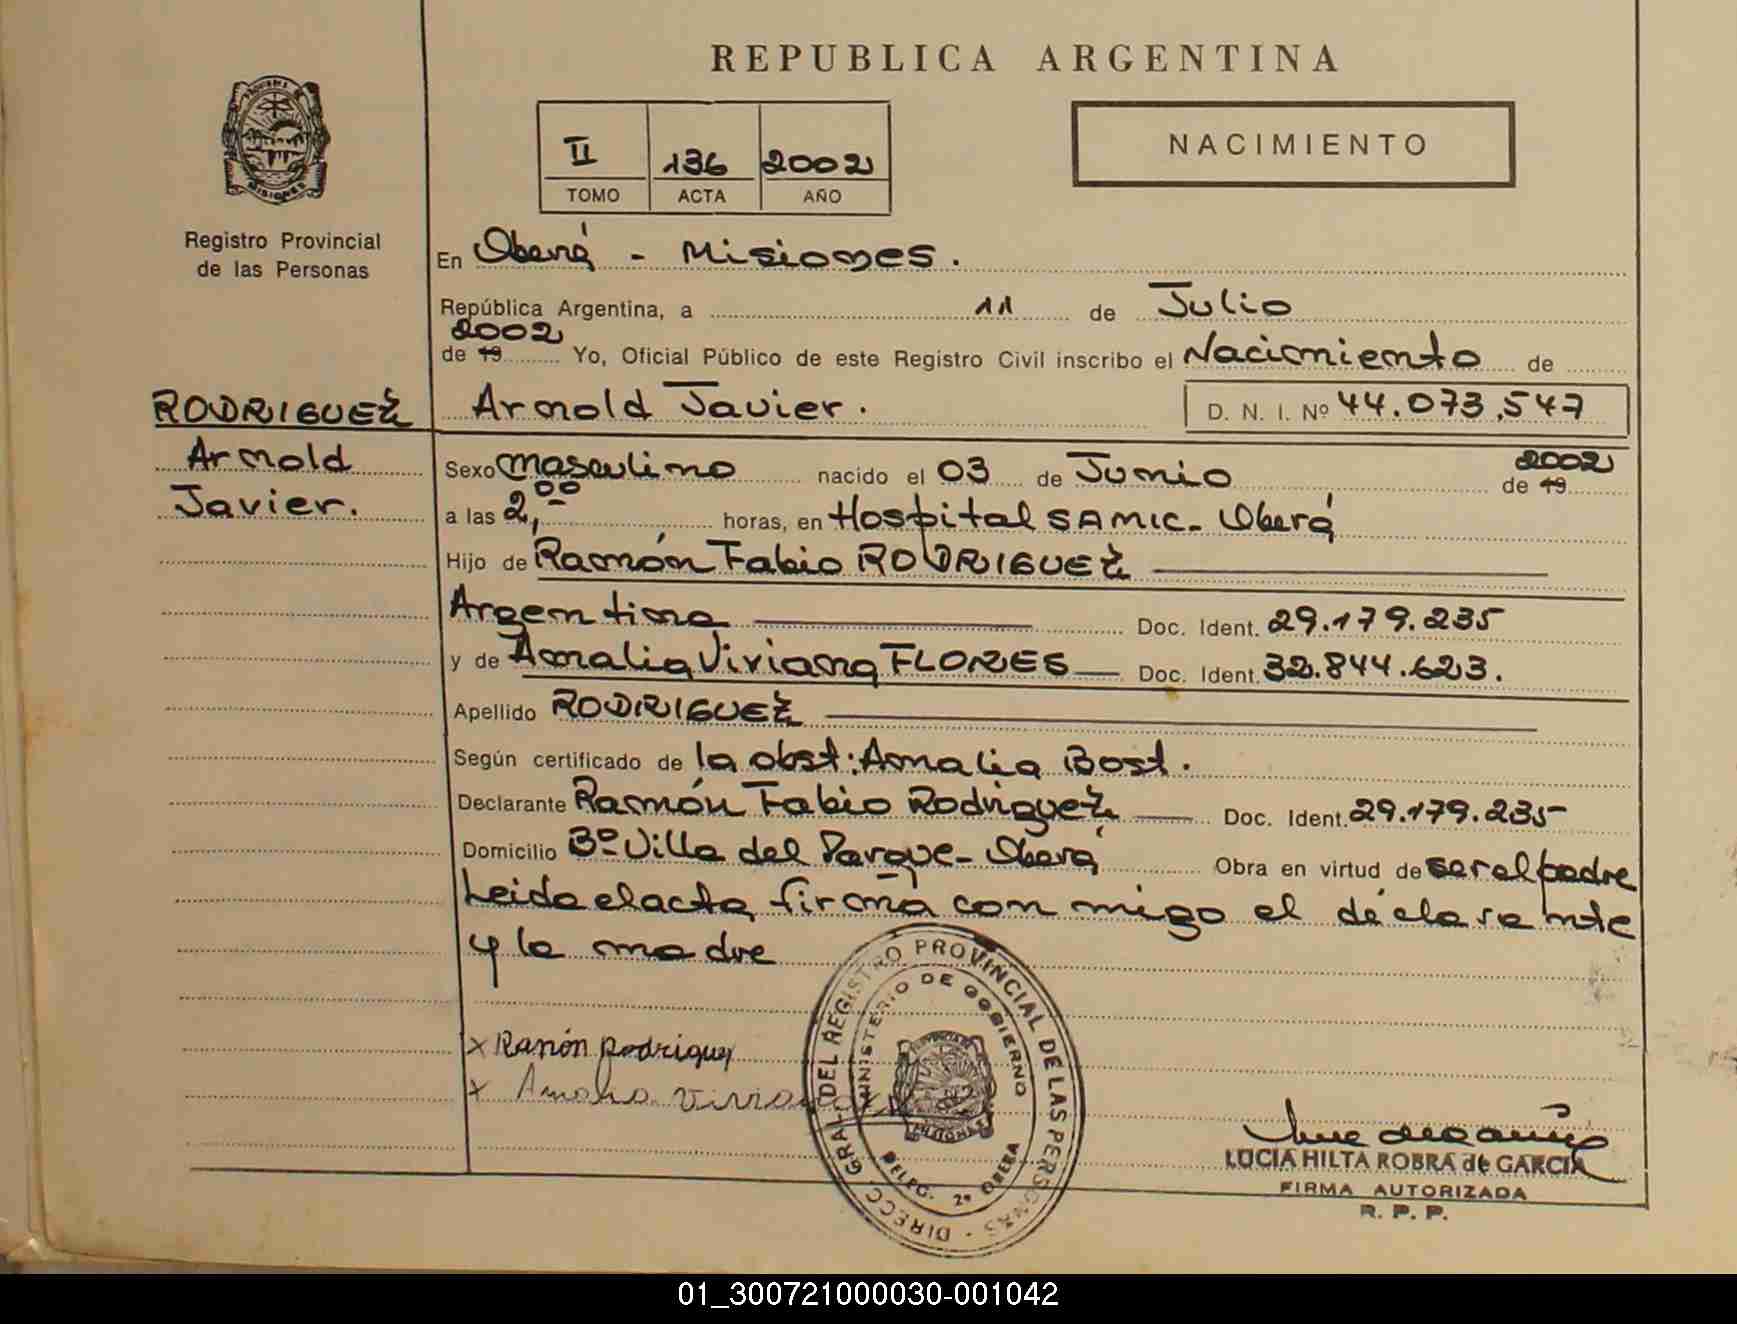 REPUBLICA ARGENTINA
NACIMIENTO
II 136 2002
TOMO ACTA AÑO
Registro Provincial
de las Personas
En Oberá - Misiones.
República Argentina, a 11 de Julio
2002
de 19 Yo, Oficial Público de este Registro Civil inscribo el Nacimiento de
Arnold Javier. D. N. I. Nº 44.073.547
RODRIGUEZ
Arnold
Javier.
Sexo masculino nacido el 03 de Junio de 19 2002
a las 2,00 horas, en Hospital SAMIC - Oberá
Hijo de Ramón Fabio RODRIGUEZ
Argentina Doc. Ident. 29.179.235
y de Amalia Viviana FLORES Doc. Ident. 32.844.623.
Apellido RODRIGUEZ
Según certificado de la obst: Amalia Bost.
Declarante Ramón Fabio Rodriguez Doc. Ident. 29.179.235
Domicilio Bº Villa del Parque - Oberá Obra en virtud de ser el padre
Leida el acta, firma con migo el declarante
y la madre
x Ramón Rodriguez
x Amalia Viviana
DIRECC. GRAL. DEL REGISTRO PROVINCIAL DE LAS PERSONAS
MINISTERIO DE GOBIERNO
PROVINCIA DE
MISIONES
DELEG. 2ª OBERA
LUCIA HILTA ROBRA de GARCIA
FIRMA AUTORIZADA
R. P. P.
01_300721000030-001042